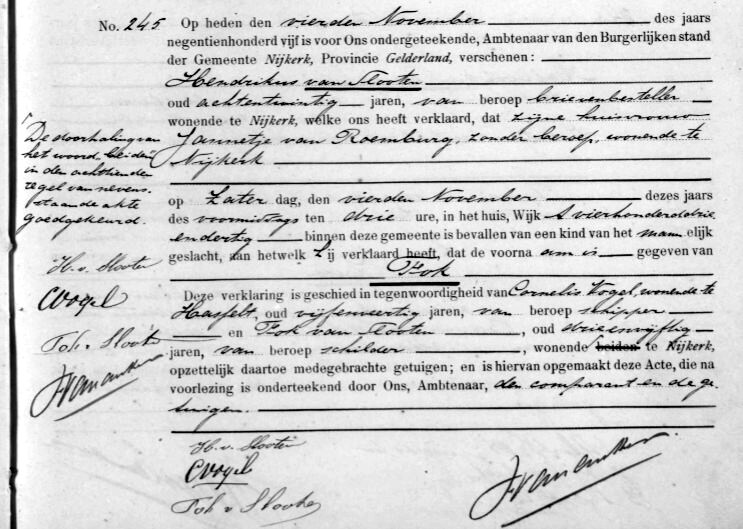 No. 245 Op heden den vierden November des jaars
negentienhonderd vijf is voor Ons ondergeteekende, Ambtenaar van den Burgerlijken stand
der Gemeente Nijkerk, Provincie Gelderland, verschenen:
Hendrikus van Slooten
oud achtentwintig jaren, van beroep brievenbesteller
wonende te Nijkerk, welke ons heeft verklaard, dat zijne huisvrouw
Jannetje van Roemburg, zonder beroep, wonende te
Nijkerk
op Zater dag, den vierden November dezes jaars
des voormiddags ten drie ure, in het huis, Wijk A vierhonderddrie
endertig binnen deze gemeente is bevallen van een kind van het mannelijk
geslacht, aan hetwelk hij verklaard heeft, dat de voorna am is gegeven van
Fok
Deze verklaring is geschied in tegenwoordigheid van Cornelis Vogel, wonende te
Hasselt, oud vijfenveertig jaren, van beroep schipper
en Fok van Slooten, oud drieenvijftig
jaren, van beroep schilder, wonende beiden te Nijkerk,
opzettelijk daartoe medegebrachte getuigen; en is hiervan opgemaakt deze Acte, die na
voorlezing is onderteekend door Ons, Ambtenaar, den comparant en de ge-
tuigen.
De doorhaling van
het woord "beiden"
in den achttienden
regel van nevens-
staande akte
goedgekeurd.
H. v. Slooten
CVogel
Fok v Slooten
H. v. Slooten
CVogel
Fok v Slooten